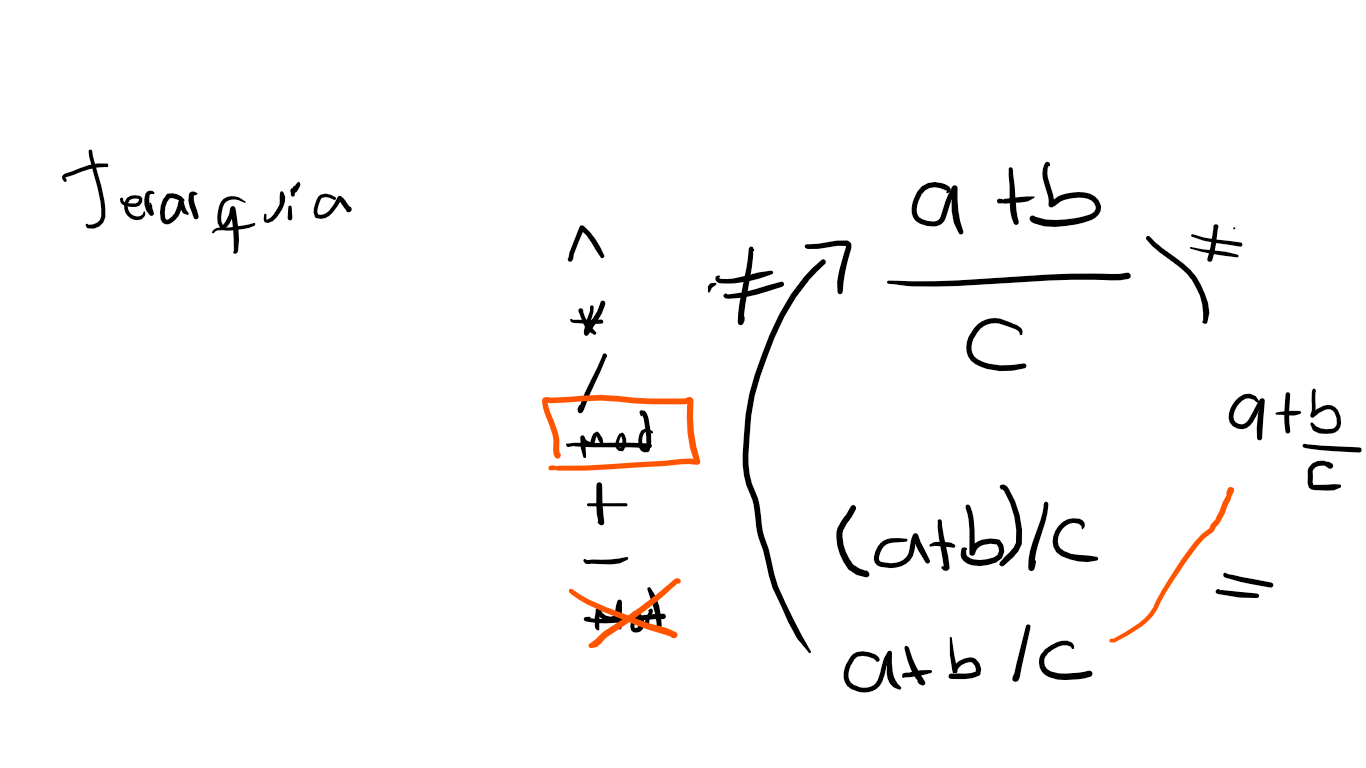 Jerarquia
^
*
/
mod
+
-
mod
≠
a+b
c
≠
a+b
c
(a+b)/c
=
a+b/c